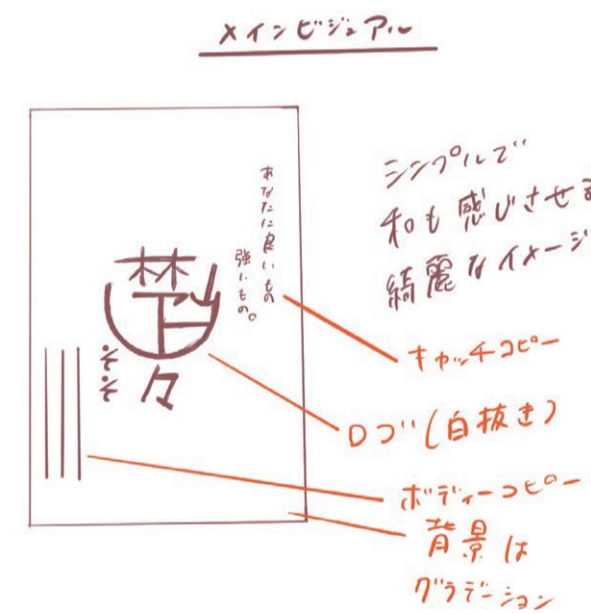 メインビジュアル
あなたに良いもの
強いもの。
楚々
そそ
シンプルで
和も感じさせる
綺麗なイメージ
キャッチコピー
ロゴ(白抜き)
ボディーコピー
背景は
グラデーション